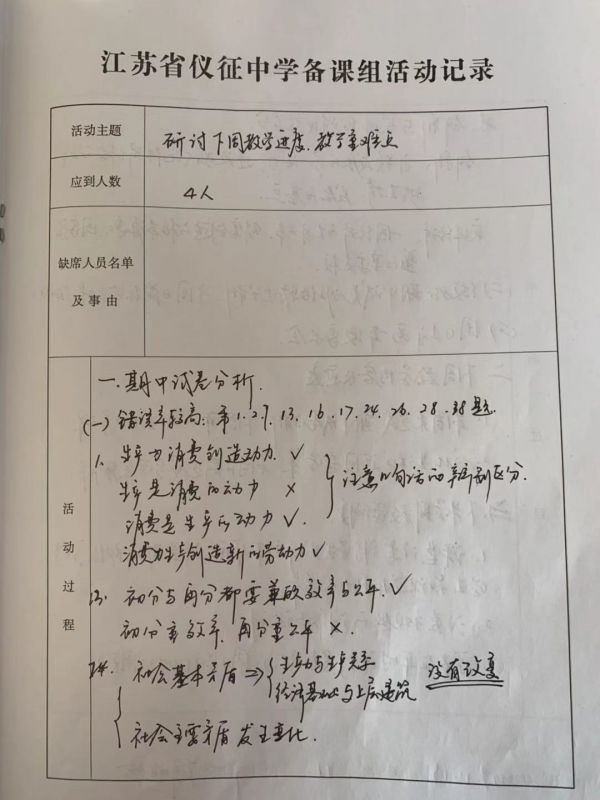 江苏省仪征中学备课组活动记录
活动主题
研讨下周教学进度、教学重难点
应到人数
4人
缺席人员名单
及事由
活动过程
一.期中试卷分析.
(一)错误率较高:第1.2.9.13.16.17.24.26.28.38题.
1. 生产为消费创造动力 ✓
生产是消费的动力 ×
消费是生产的动力 ✓
消费为生产创造新的劳动力 ✓
注意几句话的辨别区分.
13. 初分与再分都要兼顾效率与公平. ✓
初分重效率, 再分重公平 ×.
24. 社会基本矛盾⇒
生产力与生产关系
经济基础与上层建筑
没有改变
社会主要矛盾发生变化.